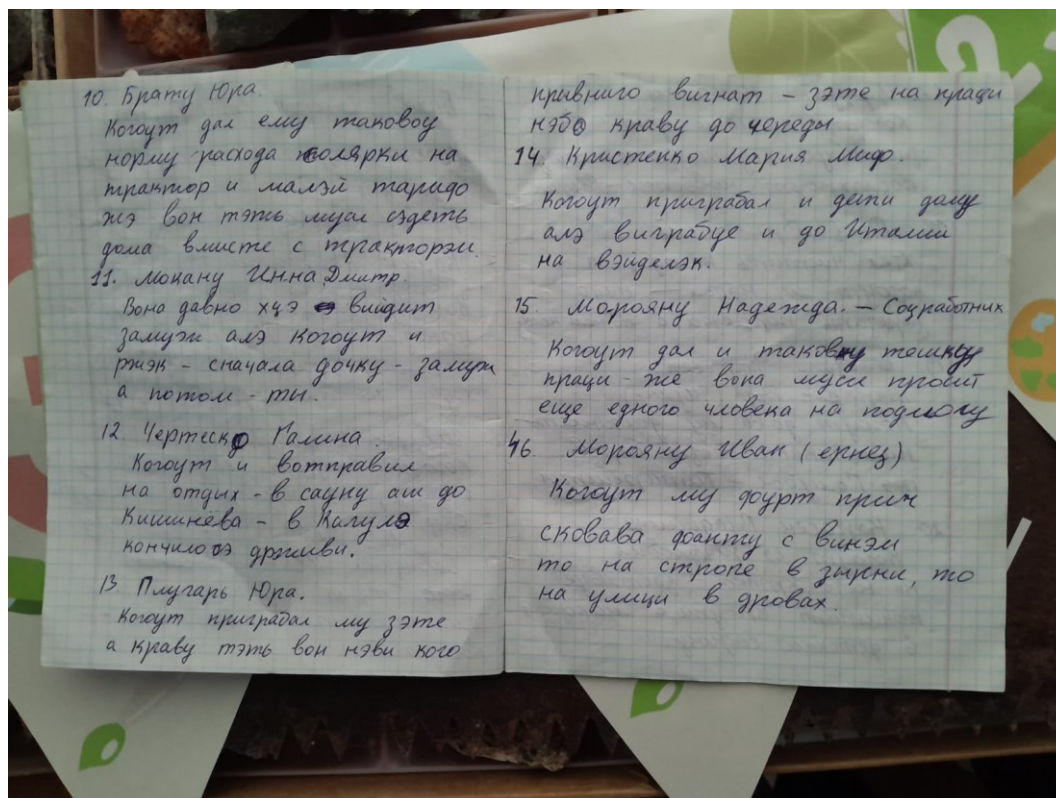 10. Брату Юра.
Когоут дал ему таковоу
норму расхода солярки на
трактор и малэй таридо
жэ вон тэть муси сэдеть
дома вмисте с тракторэм.
11. Мокану Инна Дмитр.
Вона давно хцэ вийдит
замуж алэ когоут и
ржэк - сначала дочку - замуж
а потом - ты.
12. Чертеско Галина.
Когоут и вотправил
на отдых - в сауну аш до
Кишинёва - в Кагулэ
кончило сэ држиви.
13. Плугарь Юра.
Когоут приграбал му зэте
а краву тэть вон нэви кого
првниго вигнат - зэте на праци
нэбо краву до череды
14. Кристенко Мария Миф.
Когоут приграбал и дети дому
алэ виграбуе и до Италии
на вэйделэк.
15. Морояну Надежда. - Соцработник
Когоут дал и таковну тешкоу
праци - же вона муси просит
еще едного чловека на подмогу
16. Морояну Иван (ернец)
Когоут му фурт прич
сковава фланту с винэм
то на стропе в зырни, то
на улици в дровах.